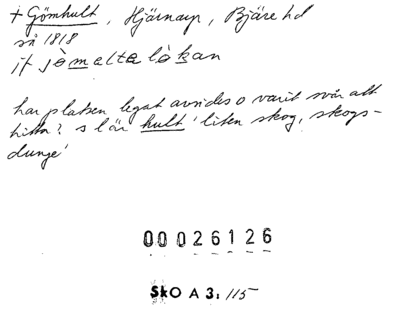 + Gömhult, Hjärnarp, Bjäre hd
så 1818
har platsen legat avsides o varit svår att
hitta? s l är hult 'liten skog, skogs-
dunge'
00026126
SkO A 3: 115